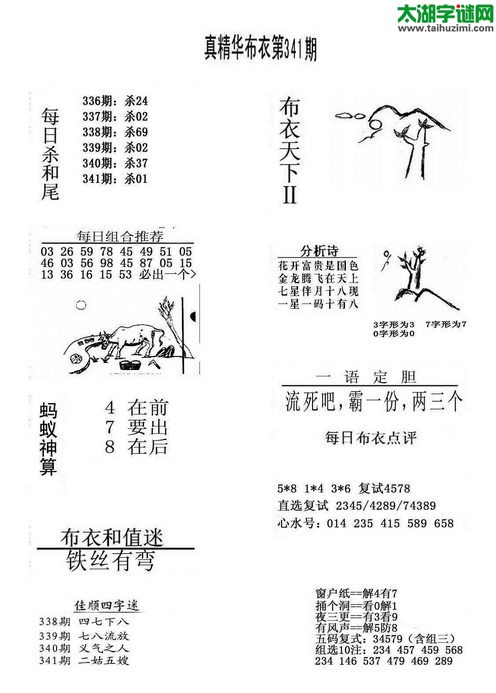 太湖字谜网
www.taihuzimi.com
真精华布衣第341期
每日杀和尾
336期：杀24
337期：杀02
338期：杀69
339期：杀02
340期：杀37
341期：杀01
布衣天下II
每日组合推荐
03 26 59 78 45 49 51 05
46 03 56 98 45 87 05 15
13 36 16 15 53 必出一个>
分析诗
花开富贵是国色
金龙腾飞在天上
七星伴月十八现
一星一码十有八
3字形为3 7字形为7
0字形为0
蚂蚁神算
4 在前
7 要出
8 在后
一语定胆
流死吧,霸一份,两三个
每日布衣点评
5*8 1*4 3*6 复试4578
直选复试 2345/4289/74389
心水号: 014 235 415 589 658
布衣和值迷
铁丝有弯
佳顺四字迷
338期 四七下八
339期 七八流放
340期 义气之人
341期 二姑五嫂
窗户纸==解4有7
捅个洞==看0解1
夜三更==有3看9
有风声==解5防8
五码复式: 34579（含组三）
组选10注: 234 457 459 568
234 146 537 479 469 289